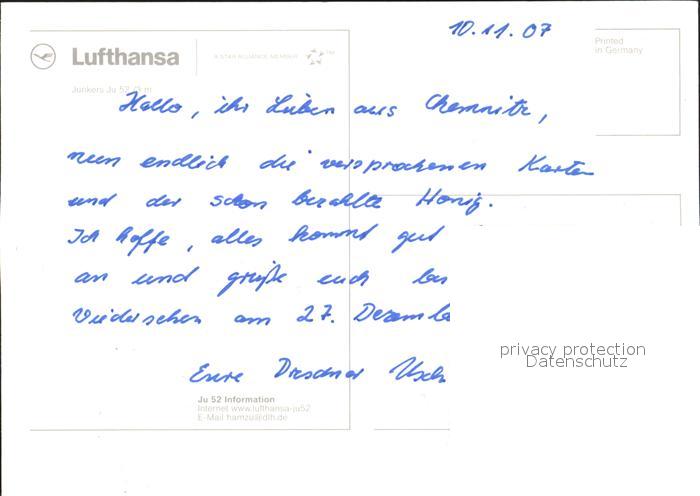 10.11.07
Lufthansa
A STAR ALLIANCE MEMBER
Printed
in Germany
Junkers Ju 52/3 m
Hallo, ihr Lieben aus Chemnitz,
nun endlich die versprochenen Karten
und der schon bezahlte Honig.
Ich hoffe, alles kommt gut
an und grüße euch
Wiedersehen am 27. Dezembe
Eure Dresdner Usch
privacy protection
Datenschutz
Ju 52 Information
Internet www.lufthansa-ju52
E-Mail hamzu@dlh.de